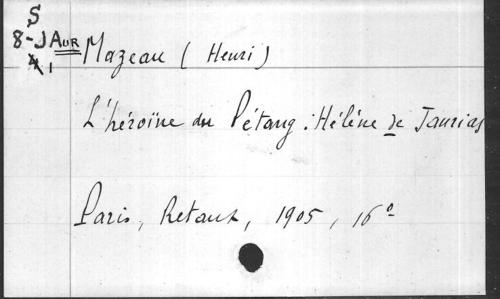 S
8-J AUR
4 1
Mazeau (Henri)
L'héroïne du Pétang : Hélène de Jaurias
Paris, Retaux, 1905, 16°